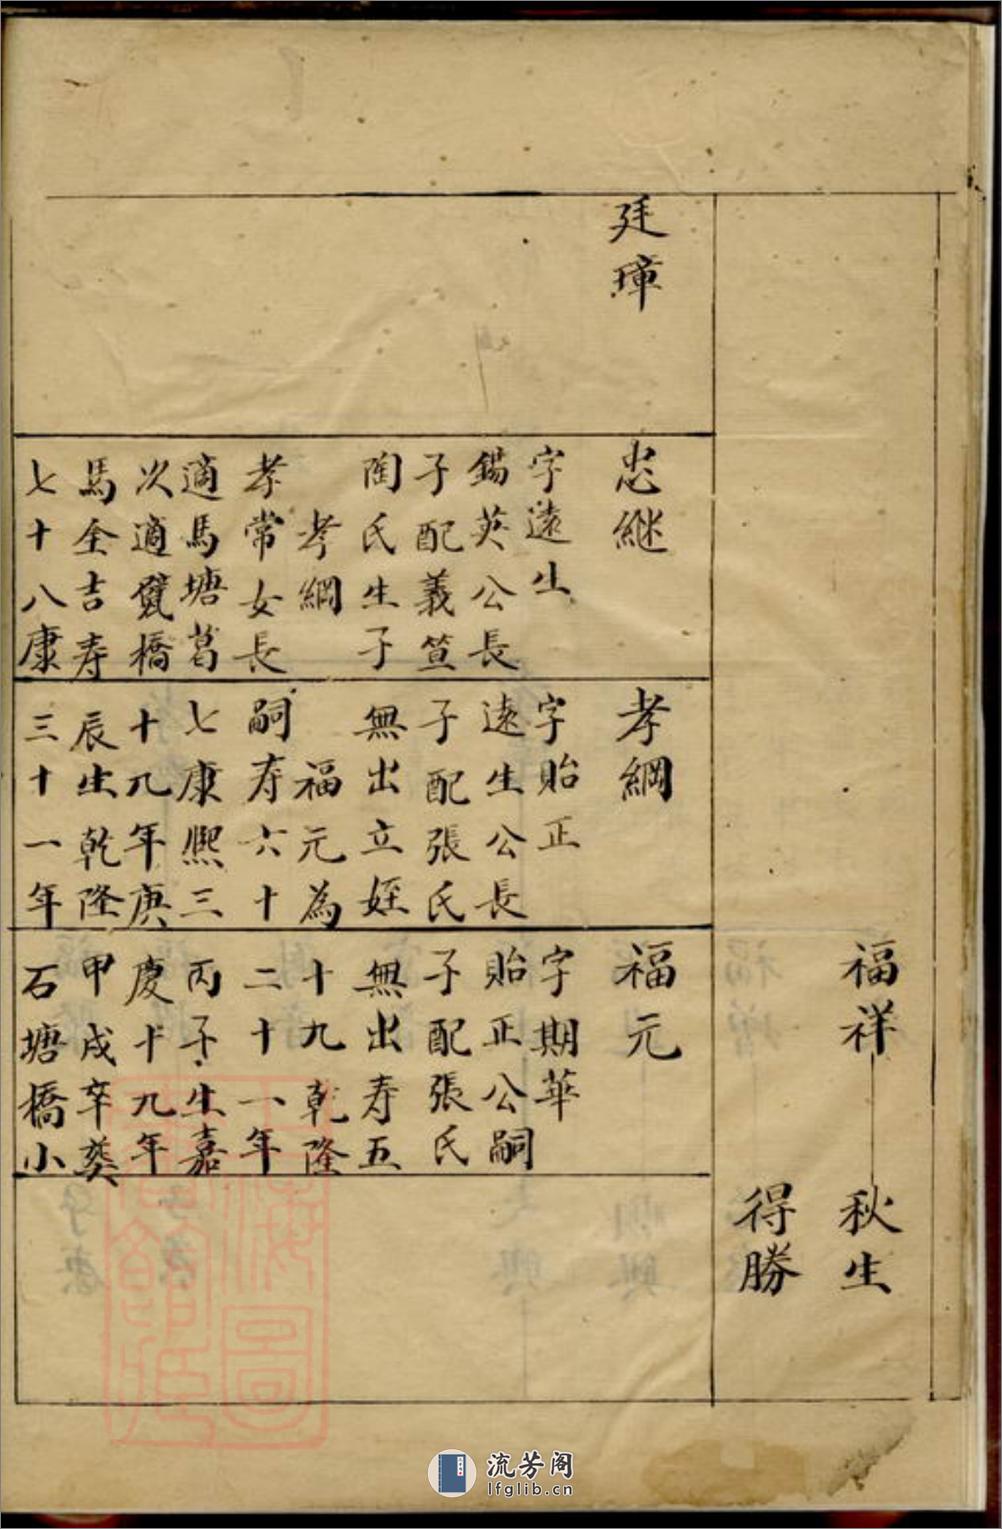 福祥
秋生
得勝
廷璋
忠継
字遠生
錫英公長
子配義笪
陶氏生子
孝綱
孝常女長
適馬塘葛
次適甓橋
馬全吉寿
七十八康
孝綱
字貽正
遠生公長
子配張氏
無出立姪
福元為
嗣寿六十
七康熙三
十九年庚
辰生乾隆
三十一年
福元
字期華
貽正公嗣
子配張氏
無出寿五
十九乾隆
二十一年
丙子生嘉
慶十九年
甲戌卒葵
石塘橋小
流芳阁
lfglib.cn